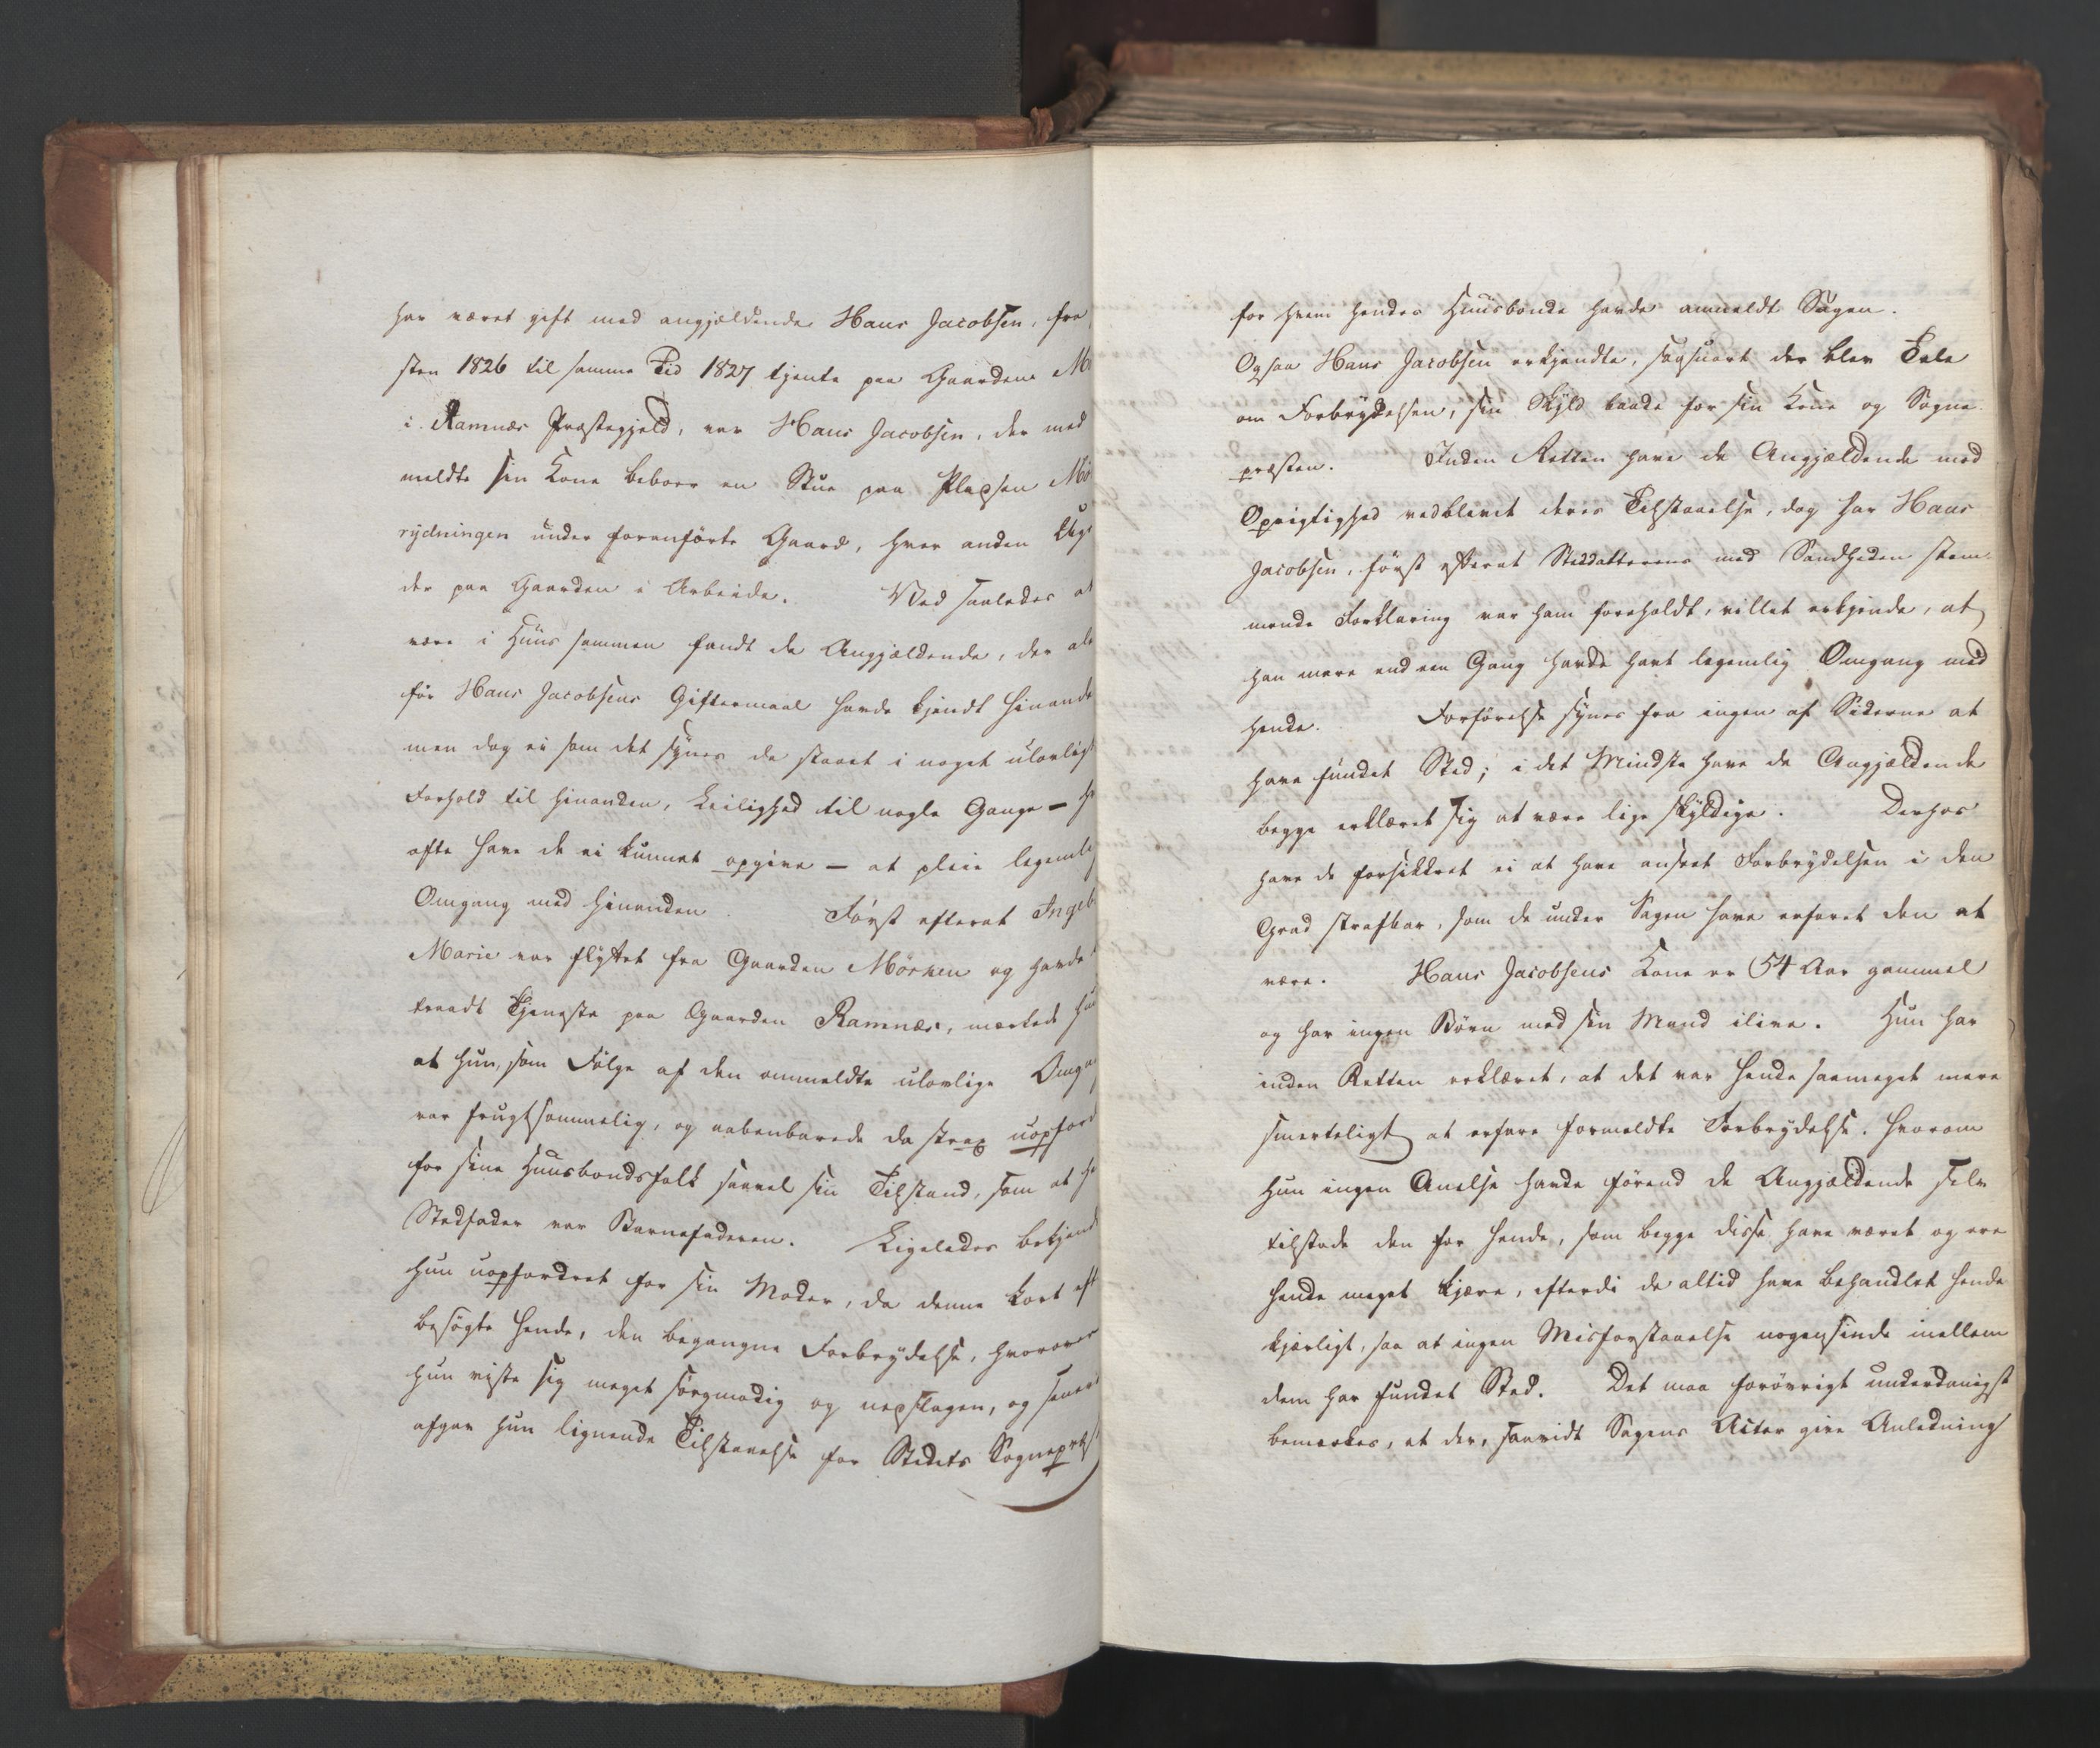 har været gift med angjældende Hans Jacobsen, fra
sten 1826 til samme Tid 1827 tjente paa Gaarden M
i Ramnæs Præstegjeld, var Hans Jacobsen, der med
meldte sin Kone beboer en Stue paa Pladsen Mö
rydningen under foranførte Gaard, hver anden Uge
der paa Gaarden i Arbeide. Ved saaledes at
være i Huus sammen fandt de Angjældende, der al
før Hans Jacobsens Giftermaal havde kjendt hinande
men dog ei som det synes da staaet i noget ulovligt
Forhold til hinanden, Leilighed til nogle Gange — h
ofte have de ei kunnet opgive — at pleie legemli
Omgang med hinanden. Først efterat Ingeb
Marie var flyttet fra Gaarden Mörken og havde
traadt Tjeneste paa Gaarden Ramnæs, mærkede hu
at hun, som Følge af den anmeldte ulovlige Omga
var frugtsommelig, og aabenbarede da strax uopford
for sine Huusbondsfolk saavel sin Tilstand, som at h
Stedfader var Barnefaderen. Ligeledes bekjend
hun uopfordret for sin Moder, da denne kort eft
besøgte hende, den begangne Forbrydelse, hvorover
hun viste sig meget sørgmodig og nedslagen, og sener
afgav hun lignende Tilstaaelse for Stedets Sognepræst
for hvem hendes Huusbonde havde anmeldt Sagen.
Ogsaa Hans Jacobsen erkjendte, saasnart der blev Tale
om Forbrydelsen, sin Skyld baade for sin Kone og Sogne-
præsten. Inden Retten have de Angjældende med
Oprigtighed vedblevet deres Tilstaaelse, dog har Hans
Jacobsen, først efterat Steddatterens med Sandheden stem-
mende Forklaring var ham foreholdt, villet erkjende, at
han mere end een Gang havde havt legemlig Omgang med
hende. Forførelse synes fra ingen af Siderne at
have fundet Sted; i det Mindste have de Angjældende
begge erklæret sig at være lige skyldige. Derhos
have de forsikkret ei at have anseet Forbrydelsen i den
Grad strafbar, som de under Sagen have erfaret den at
være. Hans Jacobsens Kone er 54 Aar gammel
og har ingen Børn med sin Mand ilive. Hun har
inden Retten erklæret, at det var hende saameget mere
smerteligt at erfare formeldte Forbrydelse, hvorom
hun ingen Anelse havde førend de Angjældende selv
tilstode den for hende, som begge disse have været og ere
hende meget kjære, efterdi de altid have behandlet hende
kjærligt, saa at ingen Misforstaaelse nogensinde mellem
dem har fundet Sted. Det maa forøvrigt underdanigst
bemærkes, at der, saavidt Sagens Acter give Anledning